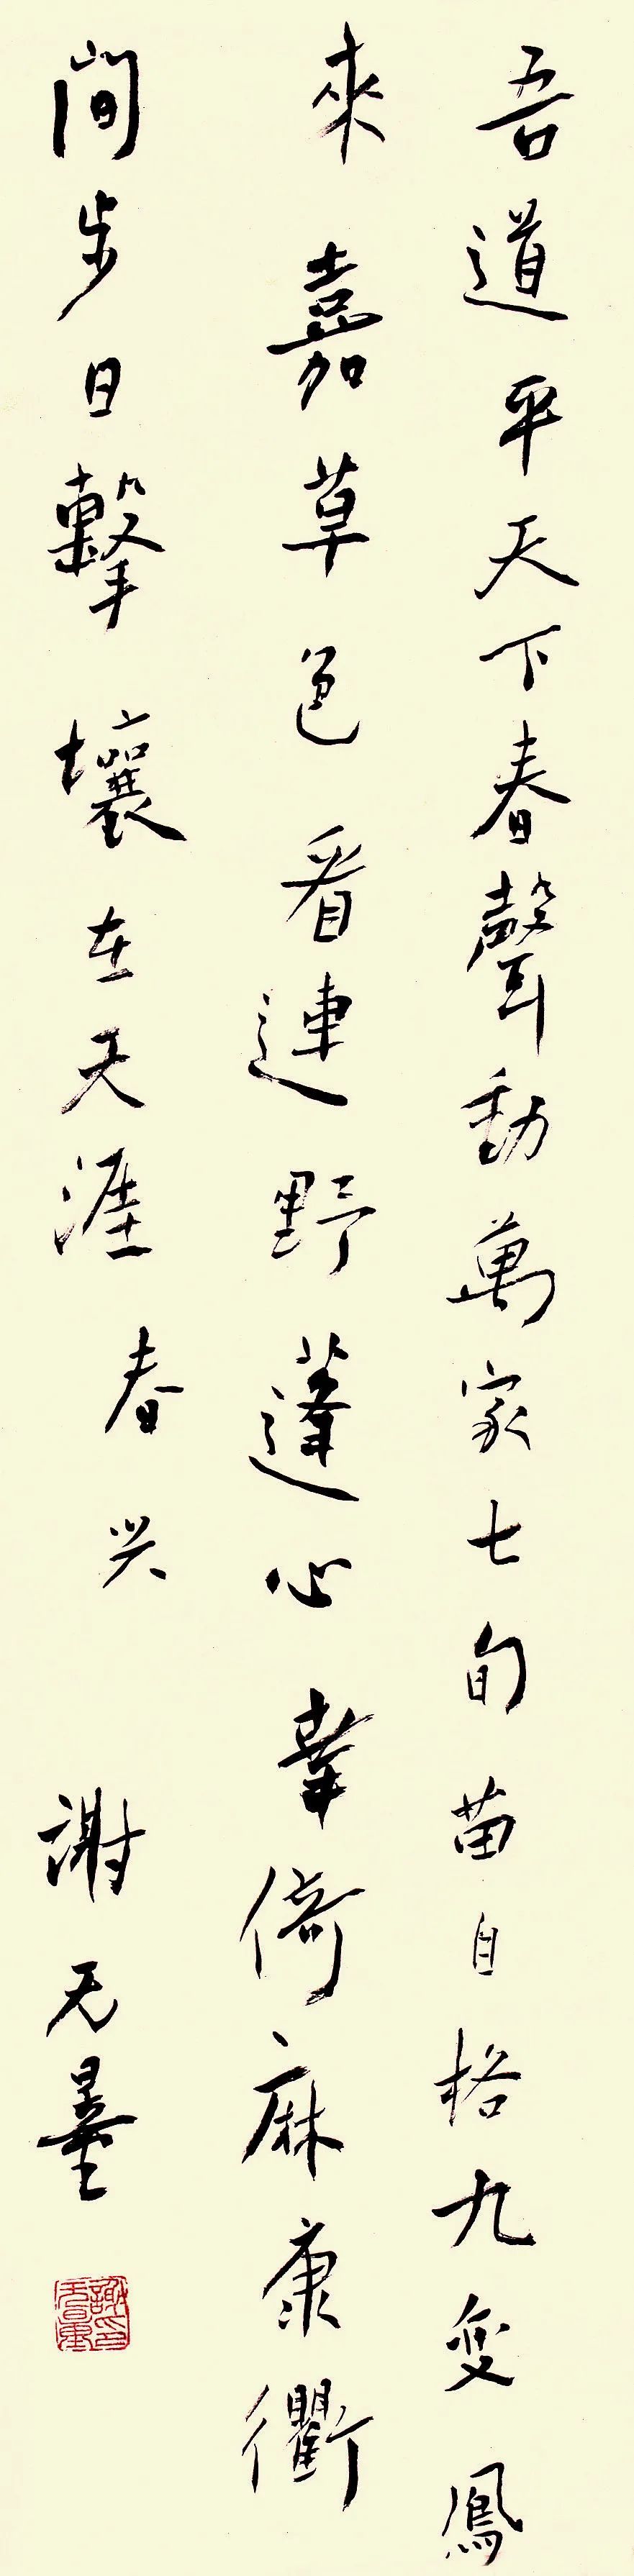 吾道平天下春聲動萬家七旬苗自格九變鳳
來嘉草色看連野蓬心幸倚麻康衢
間步日擊壤在天涯春兴
謝无量
謝无量印